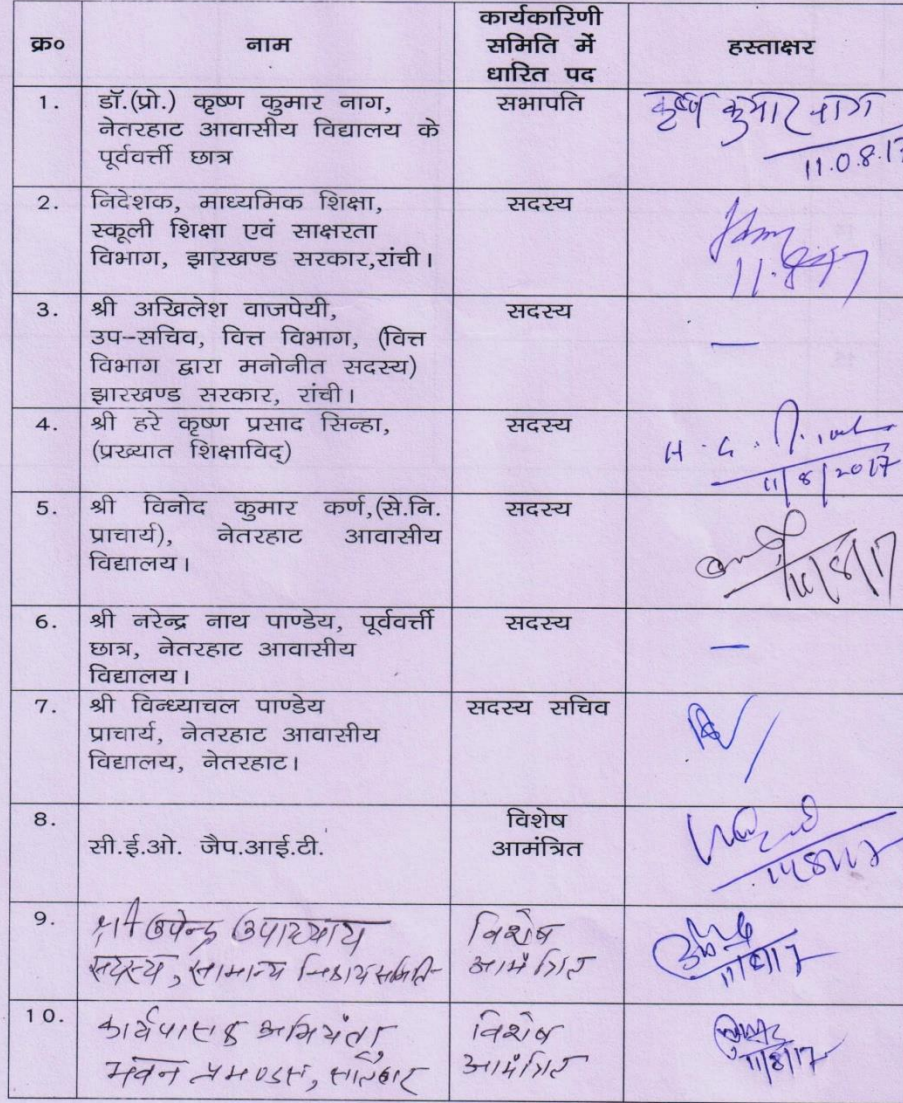 क्र०
नाम
कार्यकारिणी
समिति में
धारित पद
हस्ताक्षर
1.
डॉ.(प्रो.) कृष्ण कुमार नाग,
नेतरहाट आवासीय विद्यालय के
पूर्ववर्त्ती छात्र
सभापति
कृष्ण कुमार नाग
11.0.8.17
2.
निदेशक, माध्यमिक शिक्षा,
स्कूली शिक्षा एवं साक्षरता
विभाग, झारखण्ड सरकार,रांची।
सदस्य
11.8.17
3.
श्री अखिलेश वाजपेयी,
उप-सचिव, वित्त विभाग, (वित्त
विभाग द्वारा मनोनीत सदस्य)
झारखण्ड सरकार, रांची।
सदस्य
—
4.
श्री हरे कृष्ण प्रसाद सिन्हा,
(प्रख्यात शिक्षाविद्)
सदस्य
11/8/2017
5.
श्री विनोद कुमार कर्ण,(से.नि.
प्राचार्य), नेतरहाट आवासीय
विद्यालय।
सदस्य
11/8/17
6.
श्री नरेन्द्र नाथ पाण्डेय, पूर्ववर्त्ती
छात्र, नेतरहाट आवासीय
विद्यालय।
सदस्य
—
7.
श्री विन्ध्याचल पाण्डेय
प्राचार्य, नेतरहाट आवासीय
विद्यालय, नेतरहाट।
सदस्य सचिव
8.
सी.ई.ओ. जैप.आई.टी.
विशेष
आमंत्रित
11/8/17
9.
श्री उपेन्द्र उपाध्याय
सदस्य, सामान्य निकाय समिति
विशेष
आमंत्रित
11/8/17
10.
कार्यपालक अभियंता,
भवन प्रमण्डल, लातेहार
विशेष
आमंत्रित
11/8/17